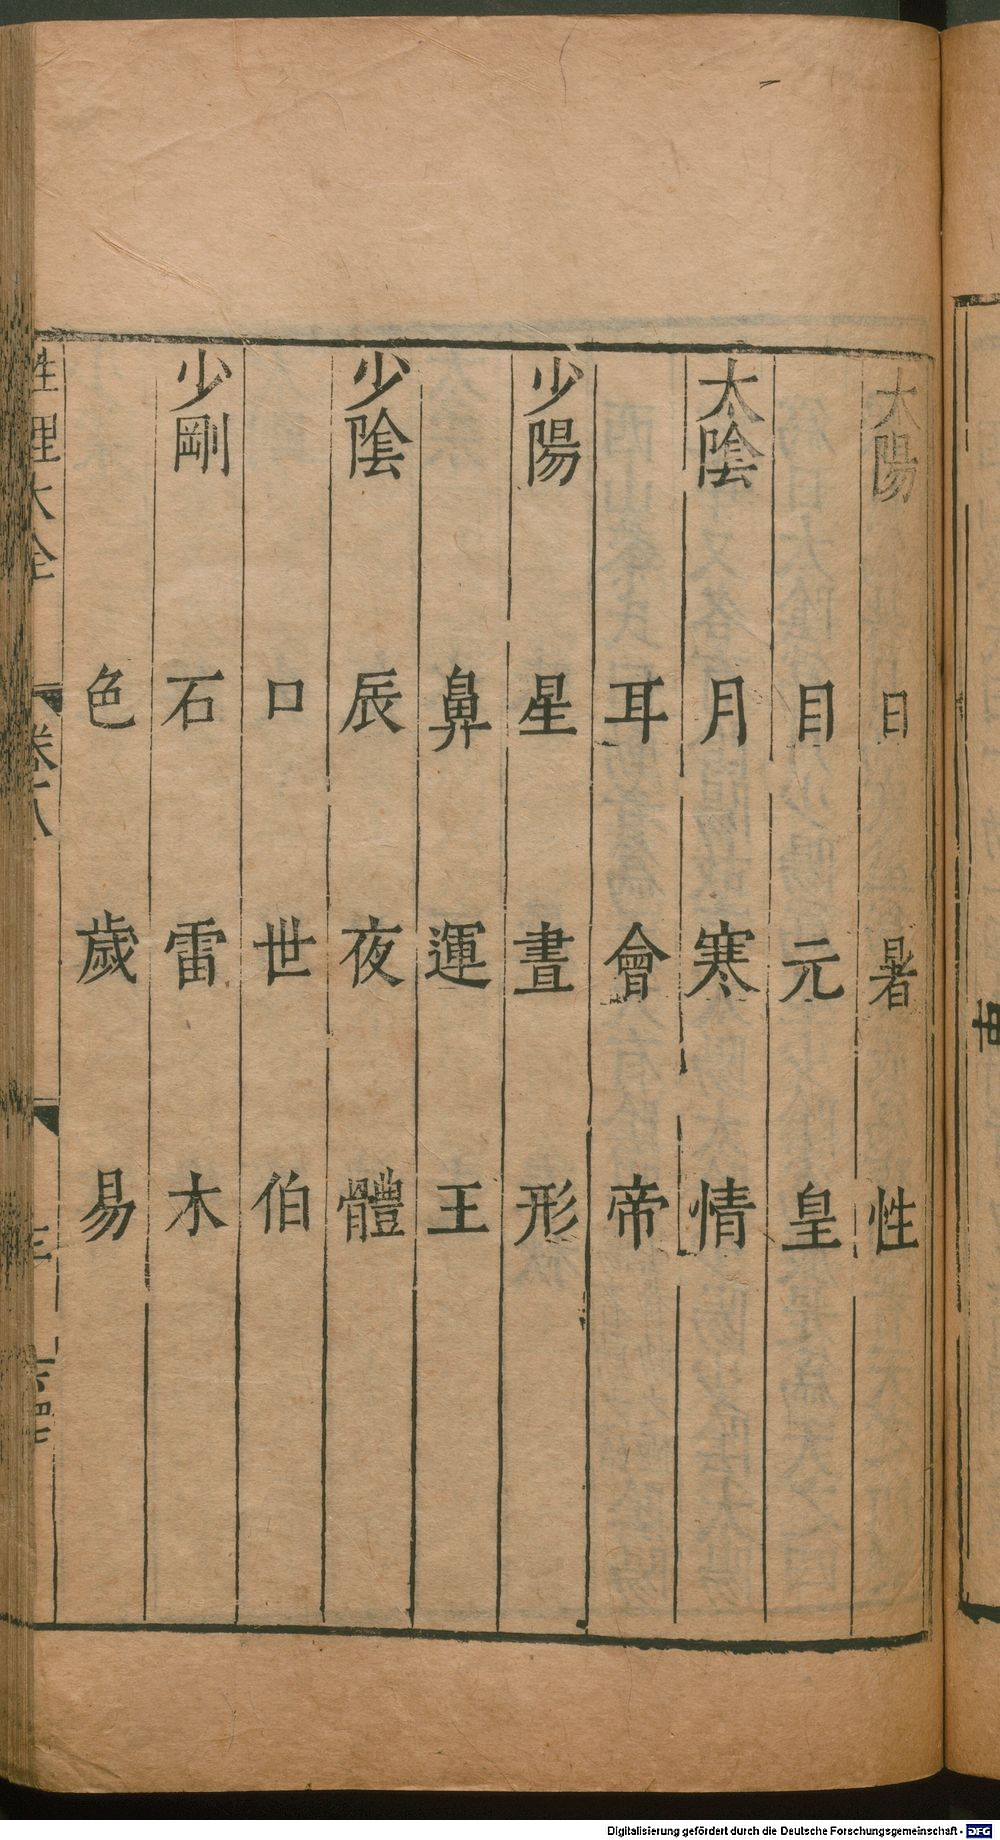 太陽 日 暑 性
目 元 皇
太陰 月 寒 情
耳 會 帝
少陽 星 晝 形
鼻 運 王
少陰 辰 夜 體
口 世 伯
少剛 石 雷 木
色 歲 易
性理大全 卷八
Digitalisierung gefördert durch die Deutsche Forschungsgemeinschaft - DFG